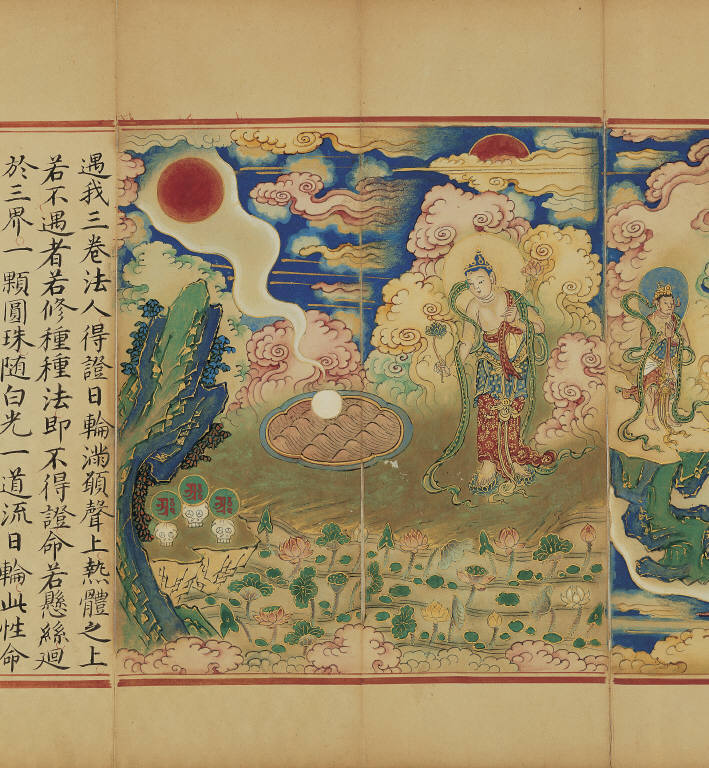 遇我三卷法人得證日輪滿聲上熱體之上
若不遇者若修種種法即不得證命若懸絲迴
於三界一顆圓珠随白光一道流日輪此性命